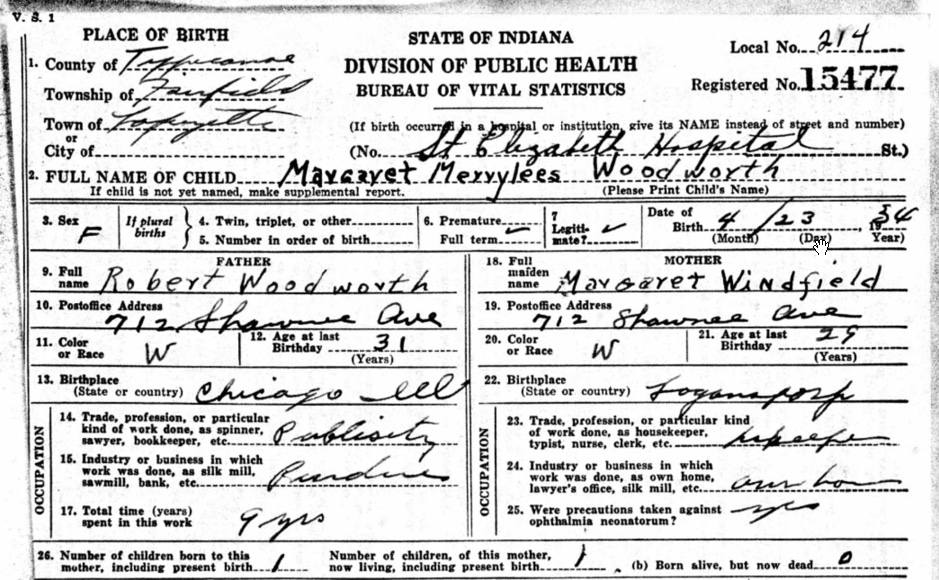 V. S. 1
PLACE OF BIRTH
STATE OF INDIANA
Local No. 214
1. County of Tippecanoe
DIVISION OF PUBLIC HEALTH
Registered No. 15477
Township of Fairfield
BUREAU OF VITAL STATISTICS
Town of Lafayette
or
(If birth occurred in a hospital or institution, give its NAME instead of street and number)
City of
(No. St Elizabeth Hospital St.)
2. FULL NAME OF CHILD Margaret Merrylees Woodworth
If child is not yet named, make supplemental report. (Please Print Child's Name)
3. Sex F
If plural births
4. Twin, triplet, or other
5. Number in order of birth
6. Premature
Full term ✓
7 Legiti-
mate? ✓
Date of
Birth 4 / 23, 1934
(Month) (Day) Year)
FATHER
9. Full
name Robert Woodworth
10. Postoffice Address
712 Shawnee Ave
11. Color
or Race W
12. Age at last
Birthday 31
(Years)
13. Birthplace
(State or country) Chicago Ill
OCCUPATION
14. Trade, profession, or particular
kind of work done, as spinner,
sawyer, bookkeeper, etc. Publisity
15. Industry or business in which
work was done, as silk mill,
sawmill, bank, etc. Purdue
17. Total time (years)
spent in this work 9 yrs
MOTHER
18. Full
maiden
name Margaret Windfield
19. Postoffice Address
712 Shawnee Ave
20. Color
or Race W
21. Age at last
Birthday 29
(Years)
22. Birthplace
(State or country) Logansport
OCCUPATION
23. Trade, profession, or particular kind
of work done, as housekeeper,
typist, nurse, clerk, etc.
24. Industry or business in which
work was done, as own home,
lawyer's office, silk mill, etc. own
25. Were precautions taken against
ophthalmia neonatorum? yes
26. Number of children born to this
mother, including present birth 1
Number of children, of this mother,
now living, including present birth 1
(b) Born alive, but now dead 0